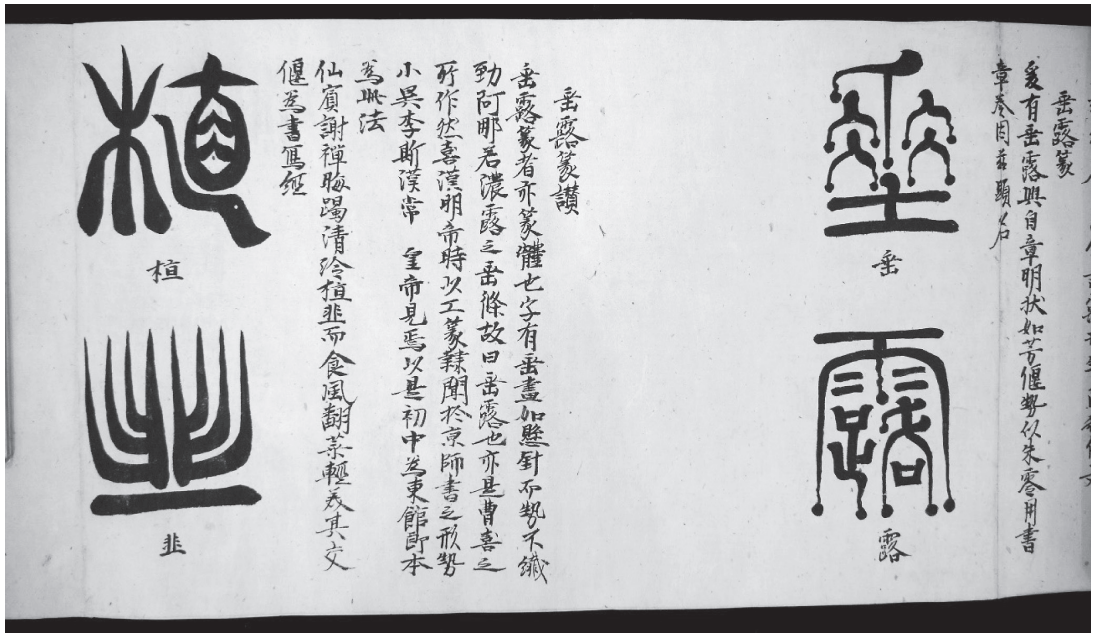 垂露篆
爰有垂露興自章明状如芳偃勢似朱零用書
章奏因玆顕名
垂
垂
露
露
垂露篆讃
垂露篆者亦篆體也字有垂畫如懸針而勢不纎
勁阿那若濃露之垂條故曰垂露也亦是曹喜之
所作然喜漢明帝時以工篆隷聞於京師書之形勢
小異李斯漢常 皇帝見焉以是初中為東館即本
為此法
仙賓謝禅晦蹋清冷植韭而食風翻葉軽為其文
偃為書寫經
植
植
韭
韭